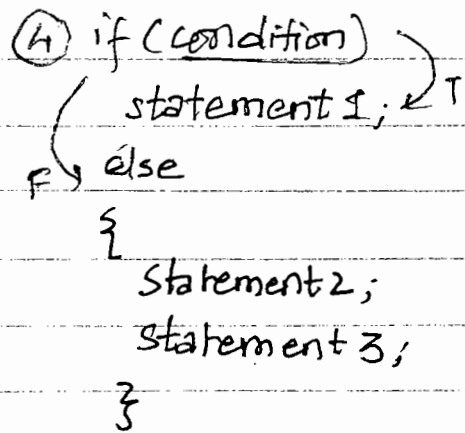 ④ if (condition)
statement 1; T
F else
{
Statement 2;
Statement 3;
}